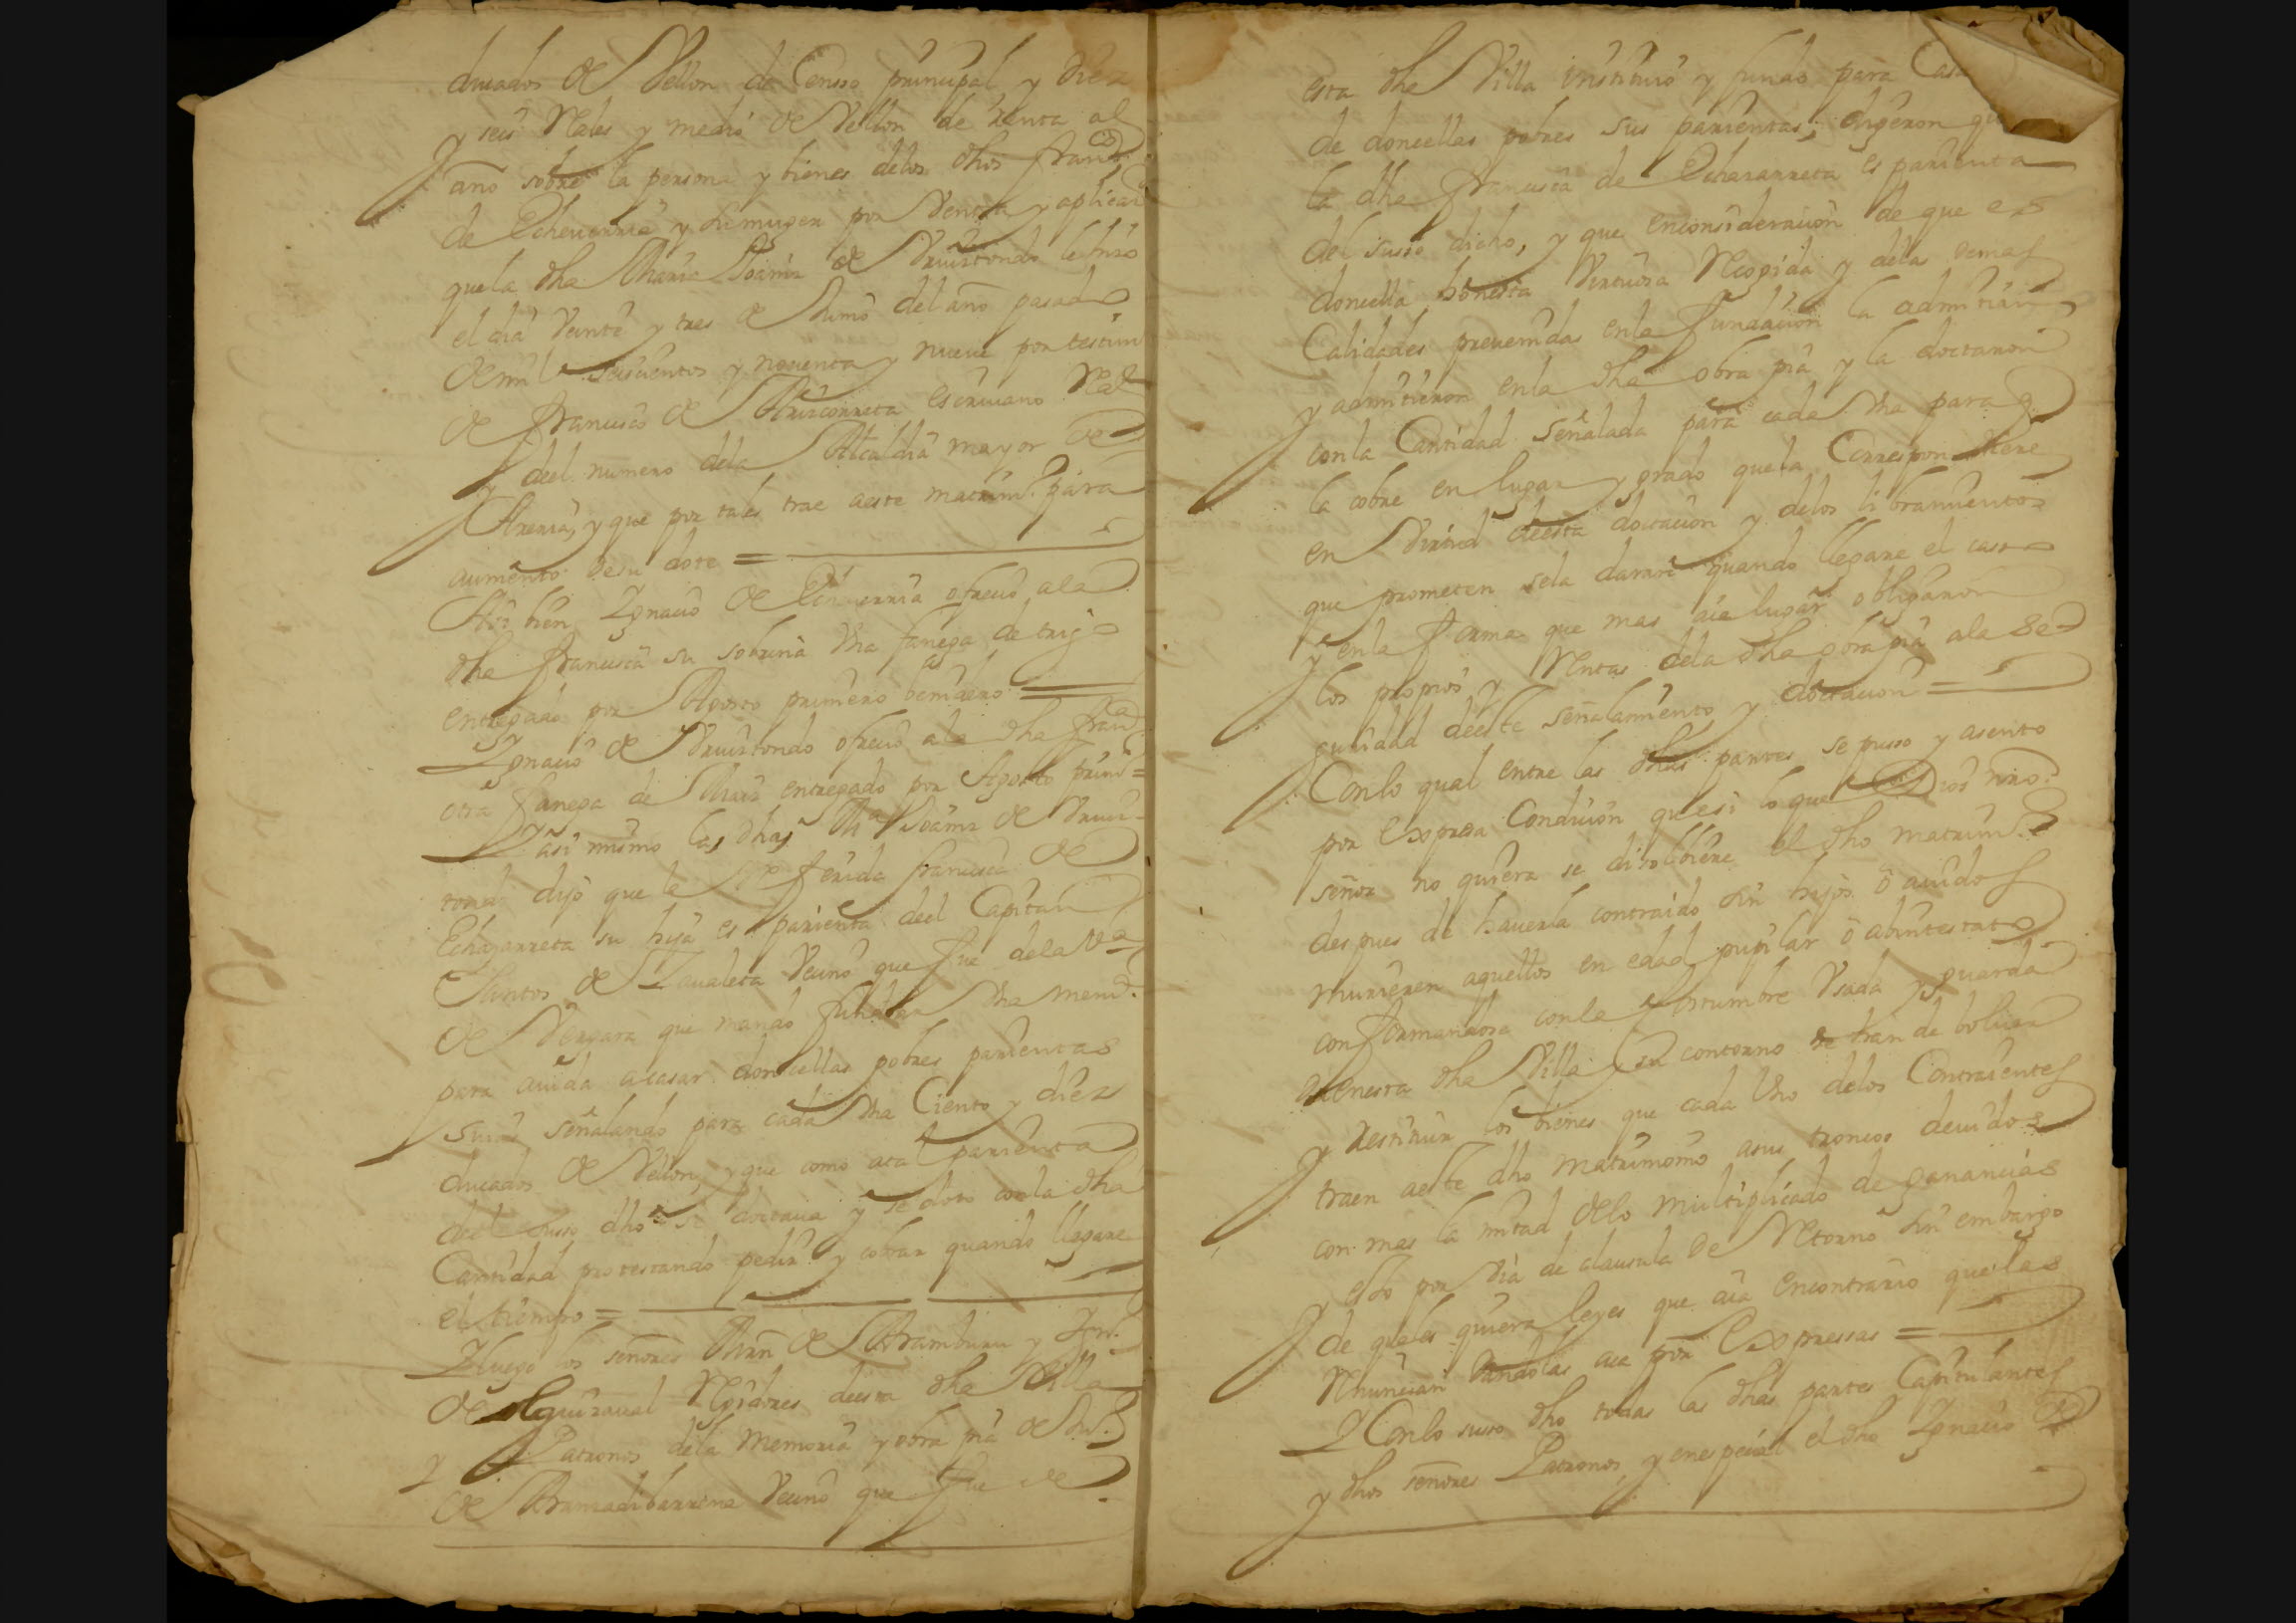 ducados de Vellon de Censso prinçipal y diez
y seis Reales y medio de Vellon de Renta al
año sobre la persona y bienes delos dhos franco
de Echeuerria y su muger por Venta y
quela dha Maria Joaniz de le hiço
el dia Veinte y tres de Junio del año pasado
de mil seiscientos y nouenta y nueue por testim
de françisco de escriuano Real
y deel numero dela Alcaldia mayor de
Areria, y que por tales trae aeste matrimo para
aumento de su dote =
Assi bien Ygnacio de Echeuerria ofrecio ala
dha francisca su sobrina Vna fanega de trigo
entregado por Agosto primero benidero =
Ygnacio de ofrecio ala dha franca
otra fanega de Maiz entregado por Agosto primo =
Y asi mismo la dha Ma Joaniz de
dijo que la Referida francisca de
Echazarreta su hija es parienta deel Capitan
Santos de Zaualeta Vecino que fue dela Va
de Vergara que mando fundar Vna mema
para aiuda a casar doncellas pobres parientas
suias señalando para cada Vna Ciento y diez
ducados de Vellon, y que como atal parienta
deel suso dho se doctaua y se doto conla dha
Cantidad protestando pedir y cobrar quando llegare
el tiempo =
Y luego los señores Martn de Aramburu y
de Eguizaual Regidores deesta dha Villa
y Patronos dela memoria y obra pia de
de Vecino que fue de
esta dha Villa instituio y fundo para Casa
de doncellas pobres sus parientas; dixeron
la dha francisca de Echazarreta es parienta
del susso dicho, y que enconsideracion de que es
doncella honesta Virtuosa Recogida y delas demas
Calidades preuenidas enla fundacion la admitian
y admitieron enla dha obra pia y la doctaron
conla Cantidad señalada para cada Vna para q
la cobre en lugar y grado quela Correspondiere
en Virtud deesta doctacion y delos libramientos
que prometen sela daran quando llegare el caso
y enla forma que mas aia lugar obligaron
los propios y Rentas dela dha obra pia ala Se-
guridad deeste señalamiento y doctacion =
Conlo qual entre las dhas partes se pusso y asento
por Expresa Condicion que si lo que Dios nro
señor no quiera se disolbiere el dho matrimo
despues de hauerla contraido sin hijos ô auidos
murieren aquellos en edad pupilar ô abintestato
conformandose conla costumbre Vsada y guarda
enesta dha Villa y su contorno se han de boluer
y Restituir los bienes que cada Vno delos Contraientes
traen aeste dho matrimonio asus troncos deuidos
con mas la mitad delo multiplicado de ganancias
y esto por Via de clausula de Retorno sin embargo
de quales quiera leyes que aia encontrario quelas
Renuncian dandolas aca por Expressas =
Y Conlo suso dho todas las dhas partes Capitulantes
y dhos señores Patronos, y enespecial el dho Ygnacio de